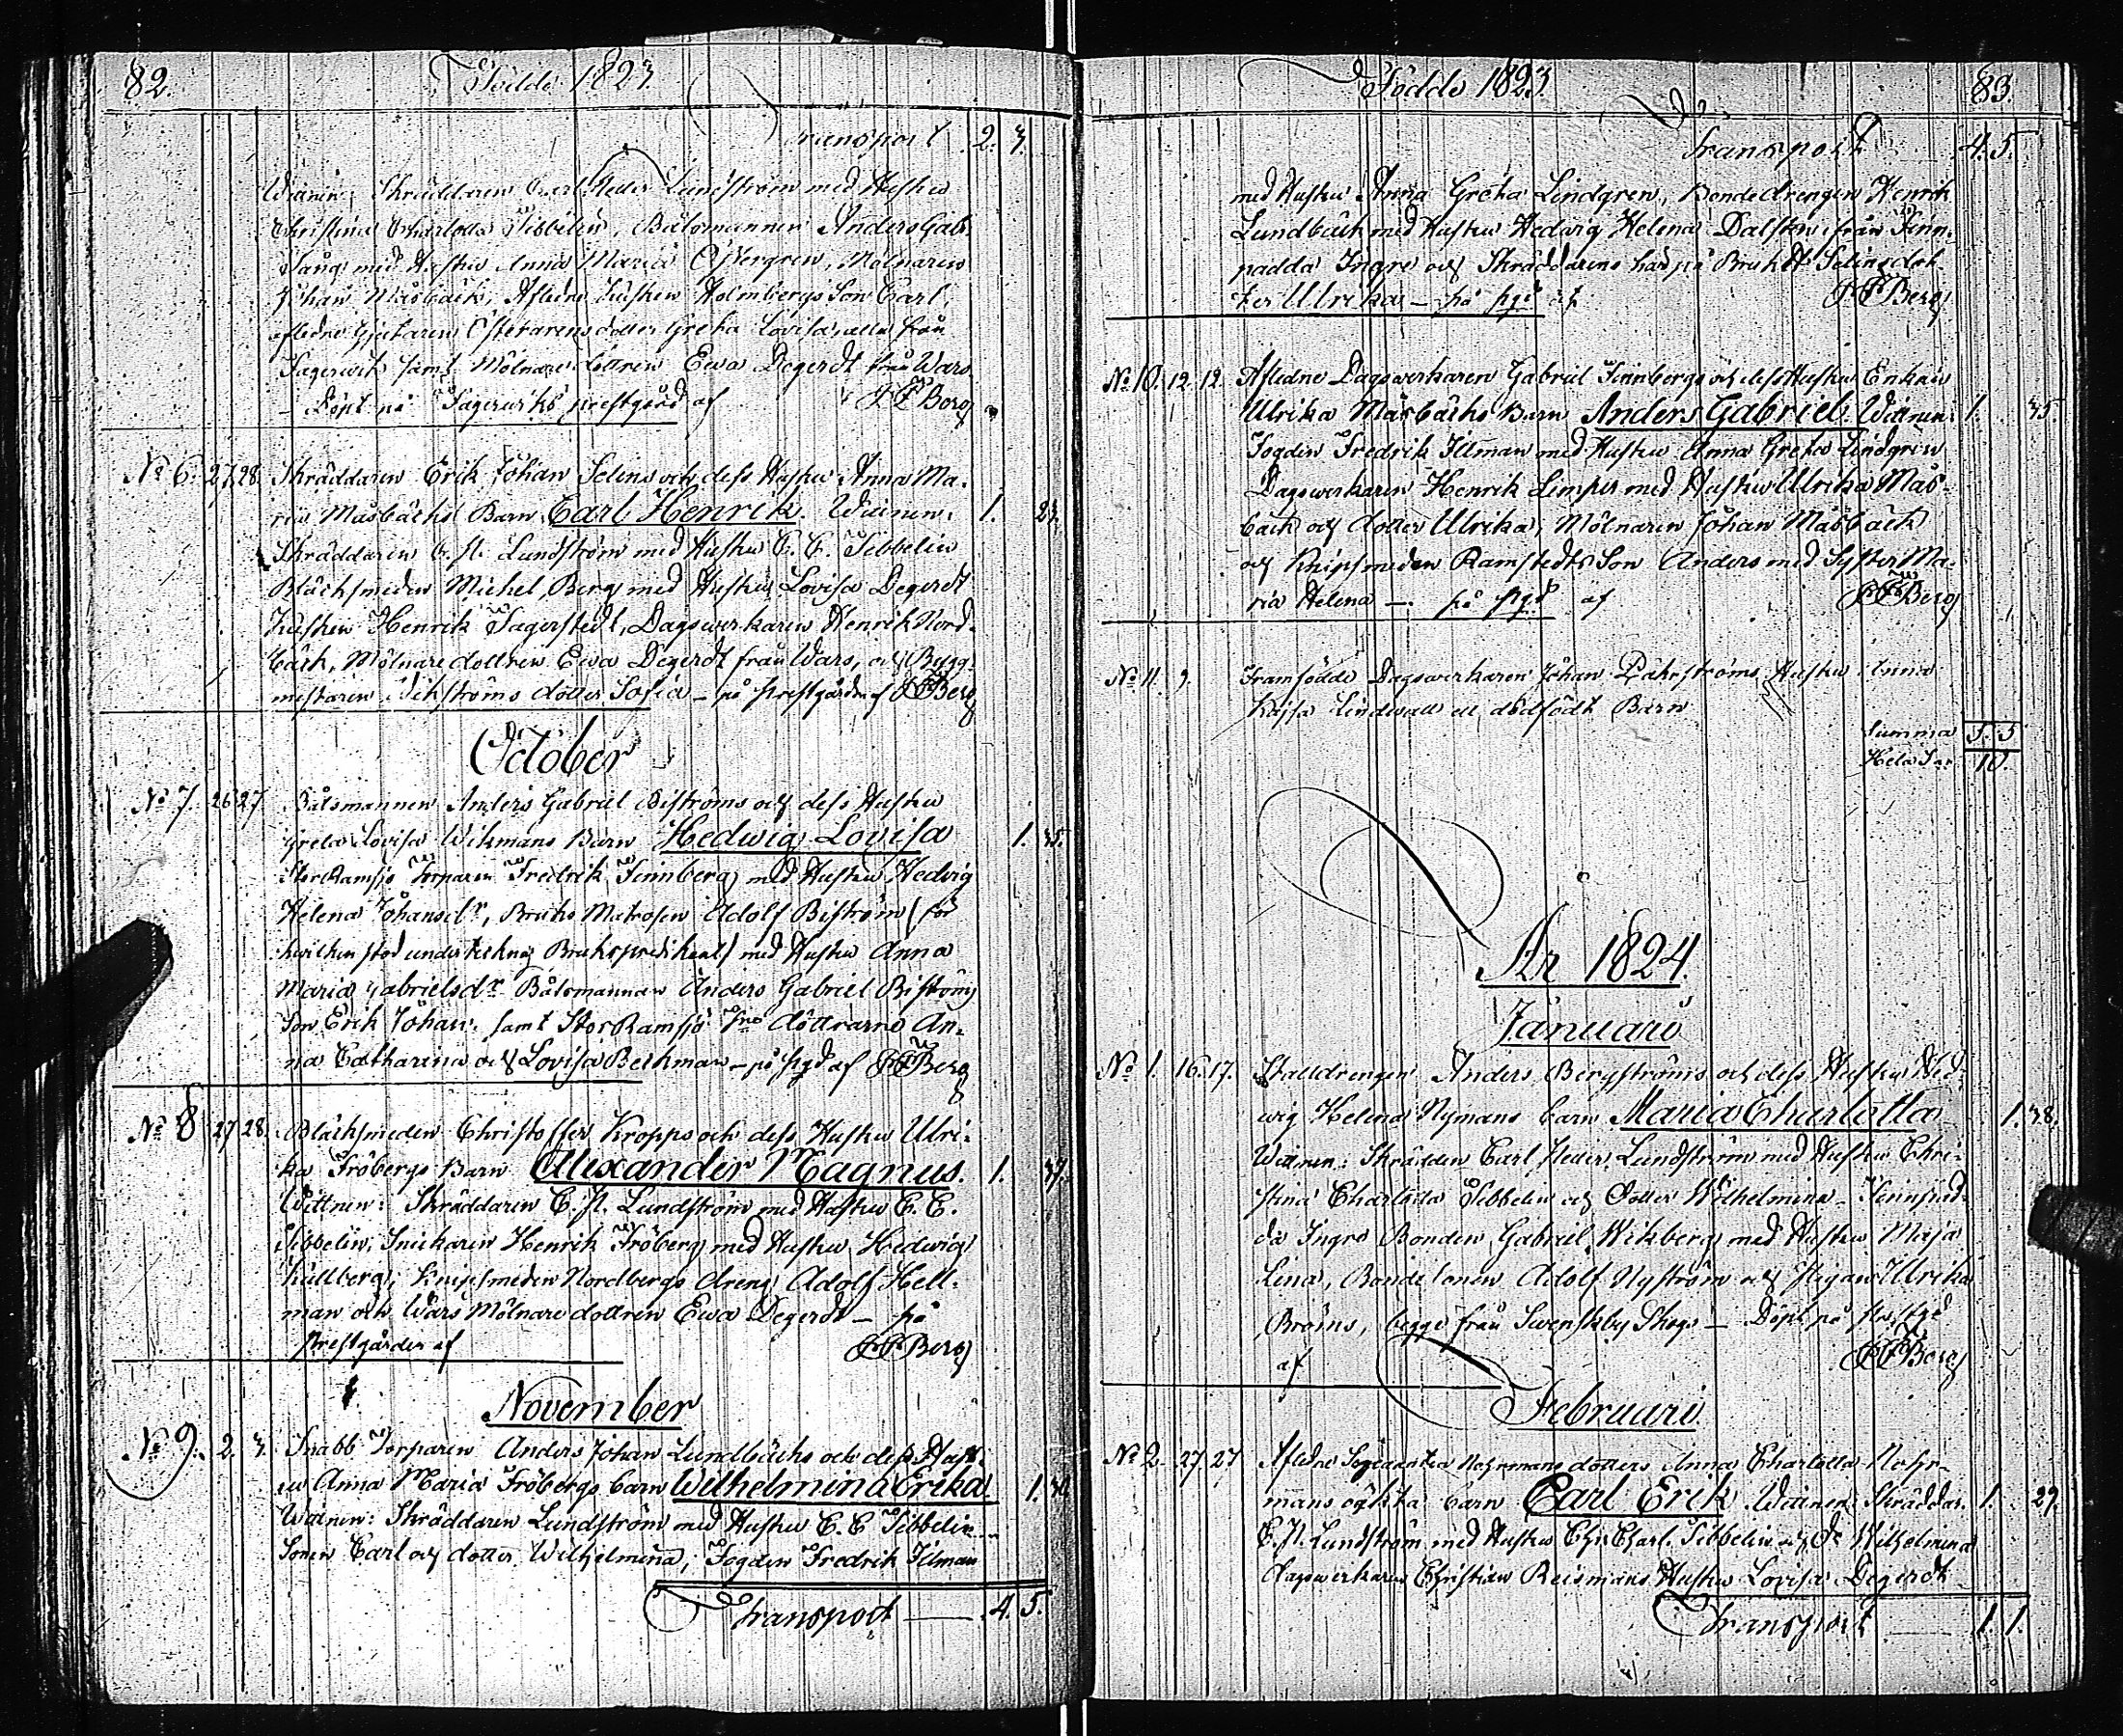 82. Födde 1823.
Transport 2. 3.
Wittnen: Skräddaren Carl Petter Lundström med Hustru
Christina Charlotta Tibbelin, Båtsmannen Anders Gabr.
med Hustru Anna Maria Östergren, Mölnaren
Johan Måsbäck, Afledne Holmbergs Son Carl,
afledne dotter Greta Lovisa, alla från
Fagerwik samt Mölnare dottren Ewa Degerdt från Wars
– Döpt på Fagerwiks prestgård af FFBerg
No 6. 27. 28. Skräddaren Erik Johan Selins och dess Hustru Anna Ma-
ria Måsbäcks Barn Carl Henrik. Wittnen: 1. 23.
Skräddaren C. P. Lundström med Hustru C. C. Tibbelin
Bläcksmeden Michel Berg med Hustru Lovisa Degerdt
Henrik Fagerstedt, Dagswerkaren Henrik Nord-
bäck, Mölnare dottren Ewa Degerdt från Wars, och Bygg-
mestaren Wikströms dotter Sofia – på prestgården af FFBerg
October
No 7. 26 27 Båtsmannen Anders Gabriel Biströms och dess Hustru
Greta Lovisa Wikmans Barn Hedwig Lovisa 1. 35.
Stor Ramsjö Torparen Fredrik Finnberg med Hustru Hedvig
Helena Johansdr, Bruks Matrosen Adolf Biström (för
hvilken stod underteknad Brukspredikant) med Hustru Anna
Maria Gabrielsdr Båtsmannen Anders Gabriel Biströms
Son Erik Johan, samt Stor Ramsjö döttrarne An-
na Catharina och Lovisa Beckman – på pgd af FFBerg
No 8 27 28. Bläcksmeden Christoffer Kropps och dess Hustru Ulri-
ka Fröbergs Barn Alexander Magnus. 1. 37.
Wittnen: Skräddaren C. P. Lundström med Hustru C. C.
Tibbelin, Snickaren Henrik Fröberg med Hustru Hedwig
Kullberg, Knipsmeden Nordbergs dreng Adolf Hell-
man och Wårs Mölnare dottren Ewa Degerdt – på
prestgården af FFBerg
November
No 9. 2. 3. Snabb Torparen Anders Johan Lundbäcks och dess Hust-
ru Anna Maria Fröbergs barn Wilhelmina Erika 1.
Wittnen: Skräddaren Lundström med Hustru C. C Tibbelin
Sonen Carl och dotter Wilhelmina, Fogden Fredrik Ilman
Transport 4. 5.
Födde 1823. 83.
Transport 4. 5.
med Hustru Anna Greta Lindgren, Bondedrengen Henrik
Lundbäck med Hustru Hedvig Helena Dalström från Finn-
padda Ingre och Skräddarens här på Bruket Selins dot-
ter Ulrika – på pgd af FFBerg
No 10. 12. 12. Afledne Dagswerkaren Gabriel Finnbergs och dess Hustru Enkan
Ulrika Måsbäcks Barn Anders Gabriel Wittnen: 1. 35
Fogden Fredrik Ilman med Hustru Anna Greta Lindgren
Dagswerkaren Henrik Limper med Hustru Ulrika Mås-
bäck och dotter Ulrika, Mölnaren Johan Måsbäck
och Knipsmeden Ramstedts Son Anders med Syster Ma-
ria Helena – på pgd af FFBerg
No 11. 9. Framfödde Dagswerkaren Johan Hustru Anna
Kajsa Lindwall ett dödfödt Barn
Summa 5. 5
Hela Sa 10.
År 1824.
Januari
No 1. 16. 17. Stalldrengen Anders Bergströms och dess Hustru Hed-
wig Helena Nymans barn Maria Charlotta 1. 38.
Wittnen: Skrädden Carl Petter Lundström med Hustru Chri-
stina Charlotta Tibbelin och Dotter Wilhelmina – Finnpad-
da Ingre Bonden Gabriel Wikberg med Hustru Maja
Lina, Bondesonen Adolf Nyström och Pigan Ulrika
Bröms, begge från Swenskby Skogs – Döpt på prestgd
af FFBerg
Februari
No 2 27. 27 Afledne dotters Anna Charlotta
mans oäkta barn Carl Erik Wittnen: Skräddar. 1. 29.
C. P. Lundström med Hustru Chr. Charl. Tibbelin och Dr Wilhelmina
Dagswerkaren Christian Reismans Hustru Lovisa Degerdt
Transport 1. 1.